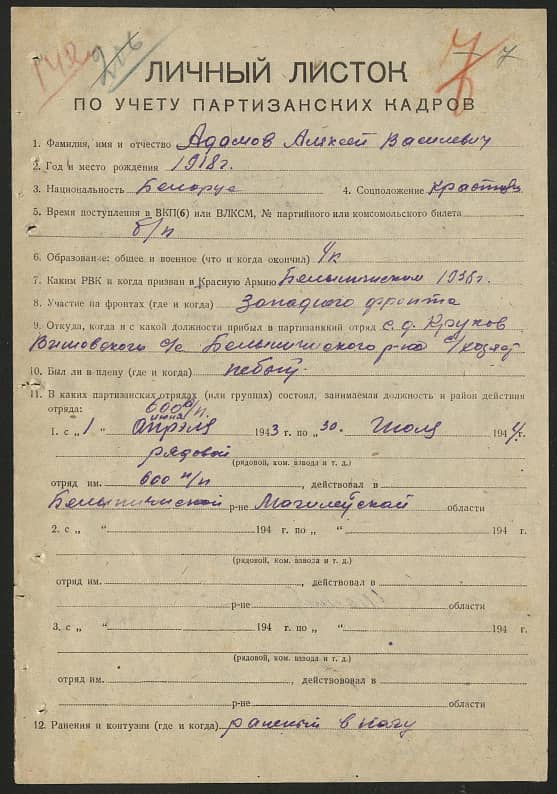 142 206 7 7
ЛИЧНЫЙ ЛИСТОК
ПО УЧЕТУ ПАРТИЗАНСКИХ КАДРОВ
1. Фамилия, имя и отчество Адамов Алексей Василевич
2. Год и место рождения 1918 г.
3. Национальность Белорус 4. Соцположение Крастян
5. Время поступления в ВКП(б) или ВЛКСМ, № партийного или комсомольского билета
б/п
6. Образование: общее и военное (что и когда окончил) 4 к
7. Каким РВК и когда призван в Красную Армию Белыничиском 1938 г.
8. Участие на фронтах (где и когда) Западного фронта
9. Откуда, когда и с какой должности прибыл в партизанкий отряд с. д. Крухов
Вишовского с/с Белыничского р-на
10. Был ли в плену (где и когда) небыл
11. В каких партизанских отрядах (или группах) состоял, занимаемая должность и район действия
отряда: 600 п/п.
июня
1. с „ 1 “ Апрэля 1943 г. по „ 30 “ Июля 1944 г.
рядовой
(рядовой, ком. взвода и т. д.)
отряд им. 600 п/п, действовал в
Белыничиской р-не Могилевской области
2. с „ “ 194 г. по „ “ 194 г.
(рядовой, ком. взвода и т. д.)
отряд им. , действовал в
р-не области
3. с „ “ 194 г. по „ “ 194 г.
(рядовой, ком. взвода и т. д.)
отряд им. , действовал в
р-не области
12. Ранения и контузии (где и когда) раненый в ногу